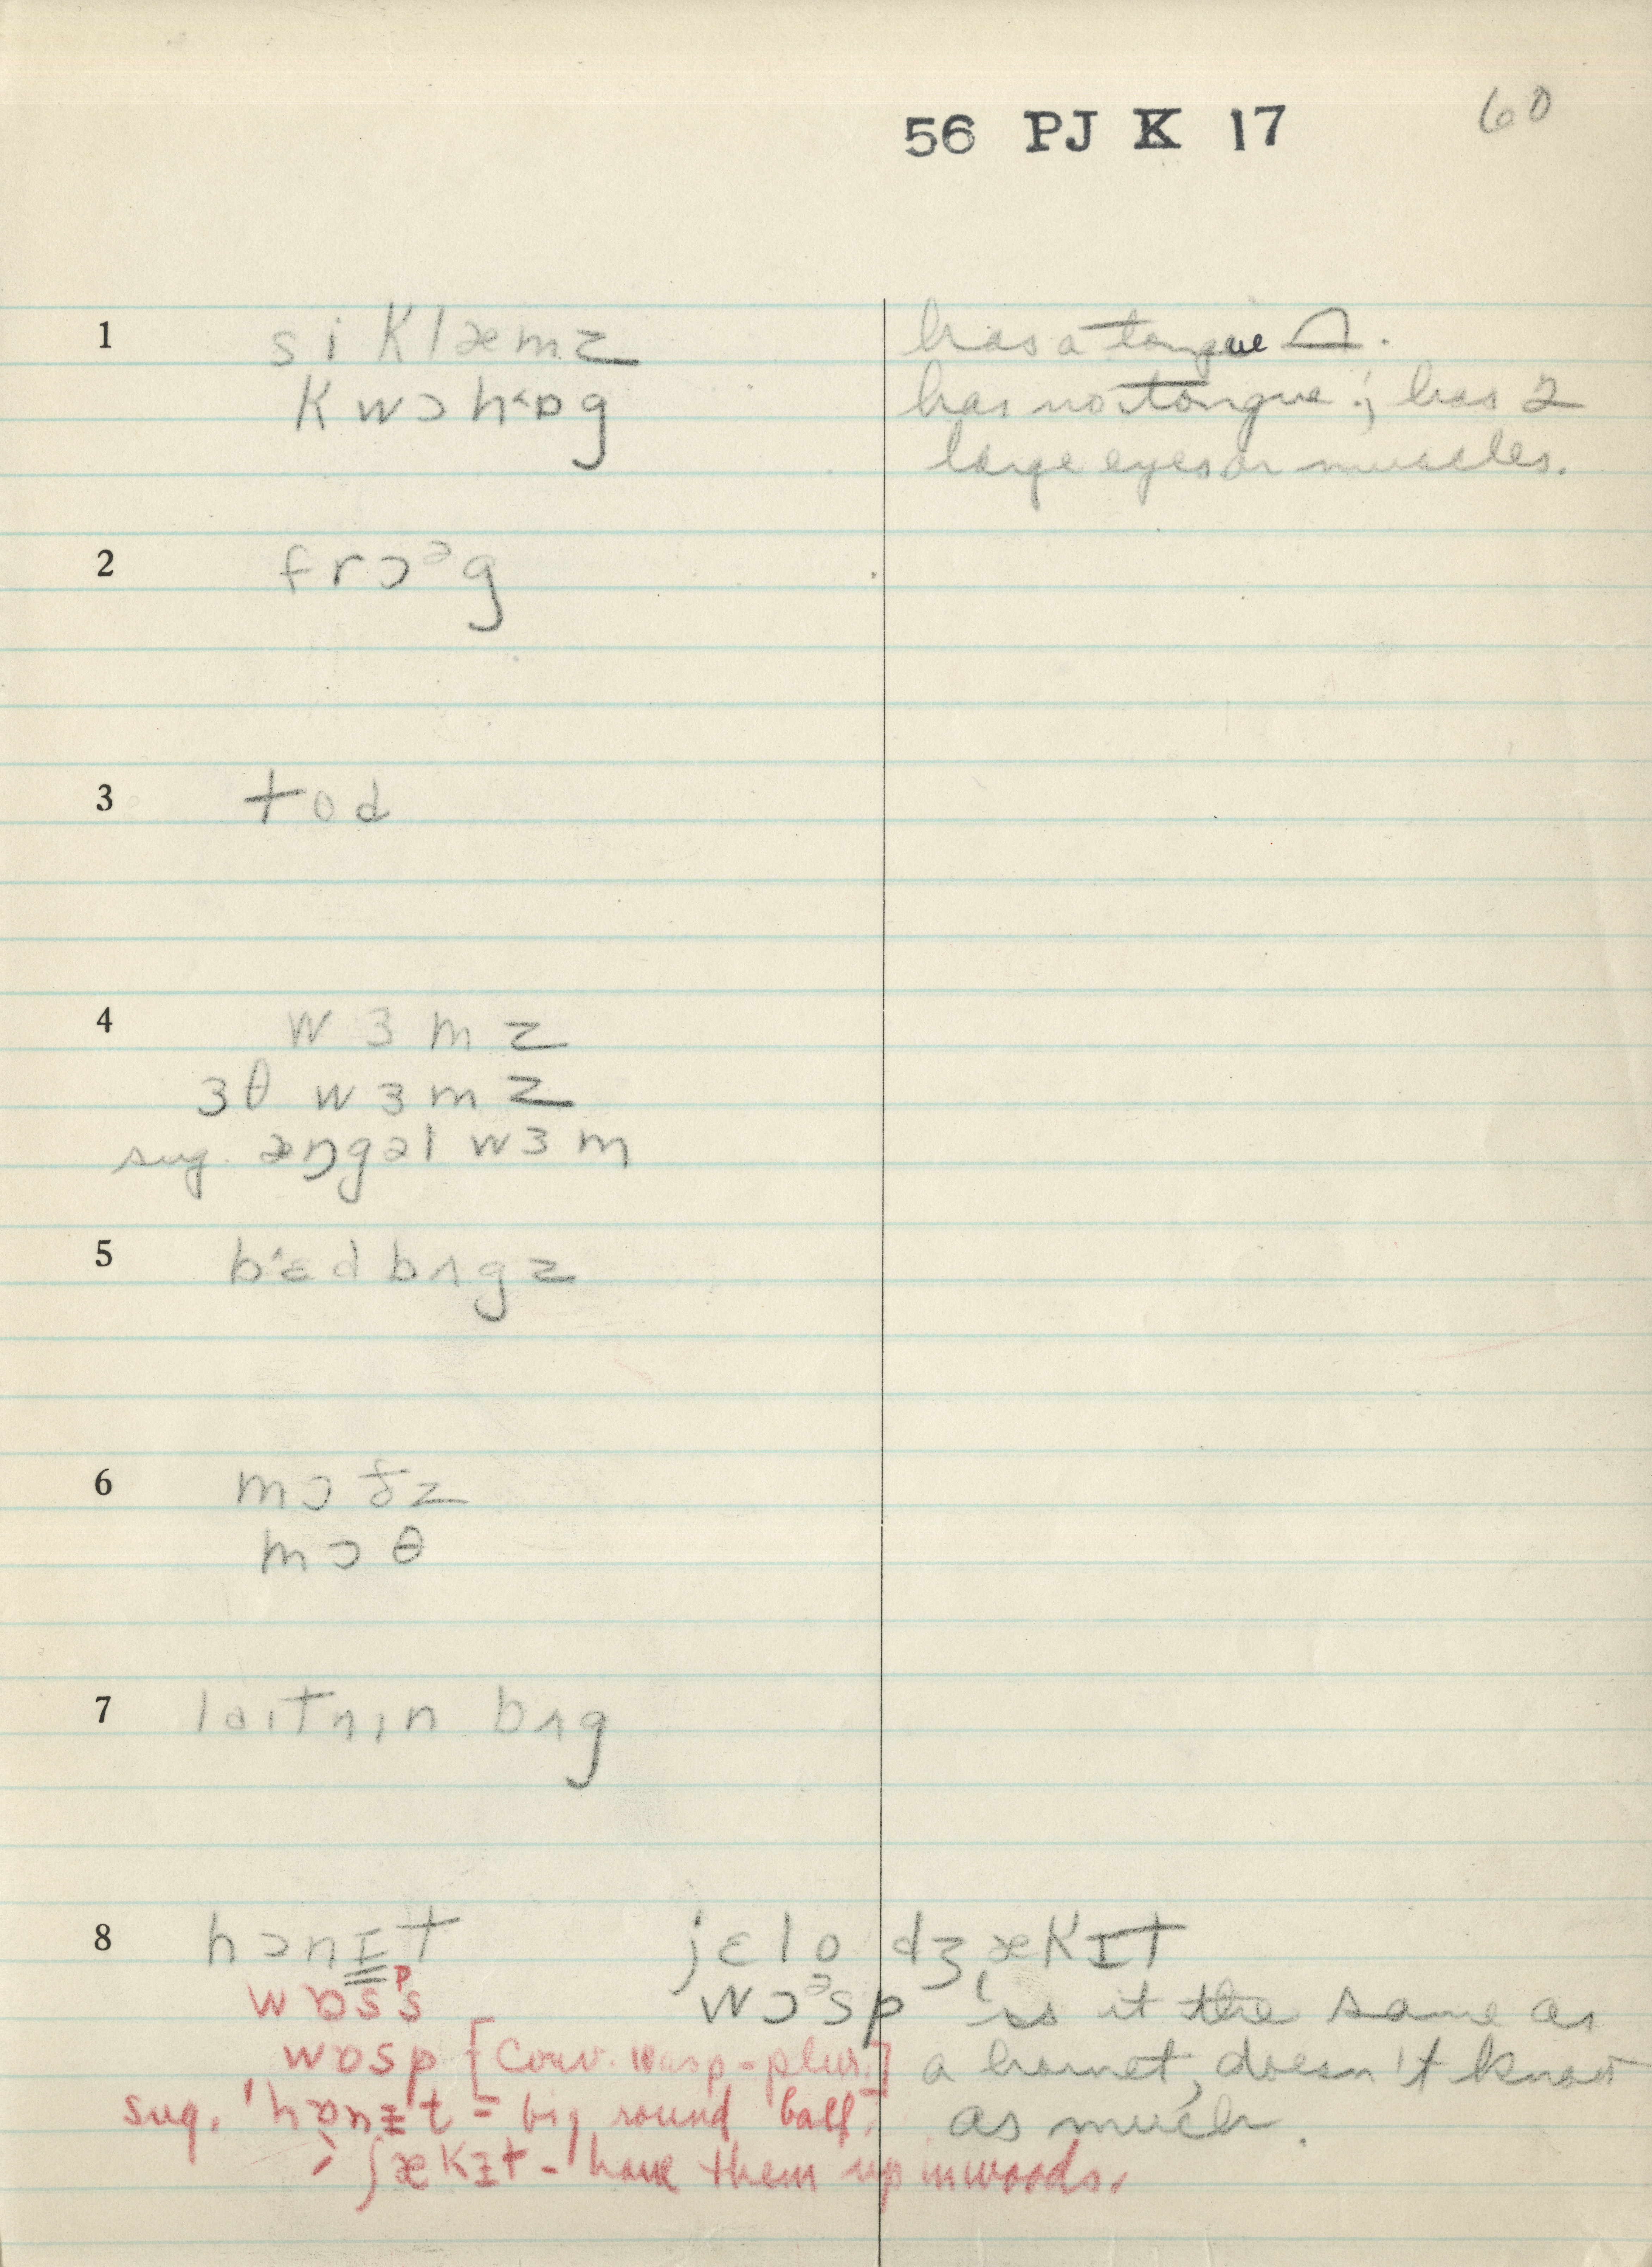 56 PJ K 17 60
1 si Klæmz has a tongue .
Kwɔhɒg has no tongue; has 2
large eyes or muscles.
2 frɔᵊg
3 tod
4 wɜmz
ɜθ wɜmz
sug. æŋgəl wɜm
5 b'ɛdbʌgz
6 mɔðz
mɔθ
7 laitnın bʌg
8 hɔnɪt jɛlo dʒækɪt
wɒsᵖs wɔᵊsp is it the same as
wɒsp [Conv. wasp - plur.] a hornet, doesn't know
sug. 'hɒnɪt = big round ball. as much.
> ʃækɪt - have them up in woods.